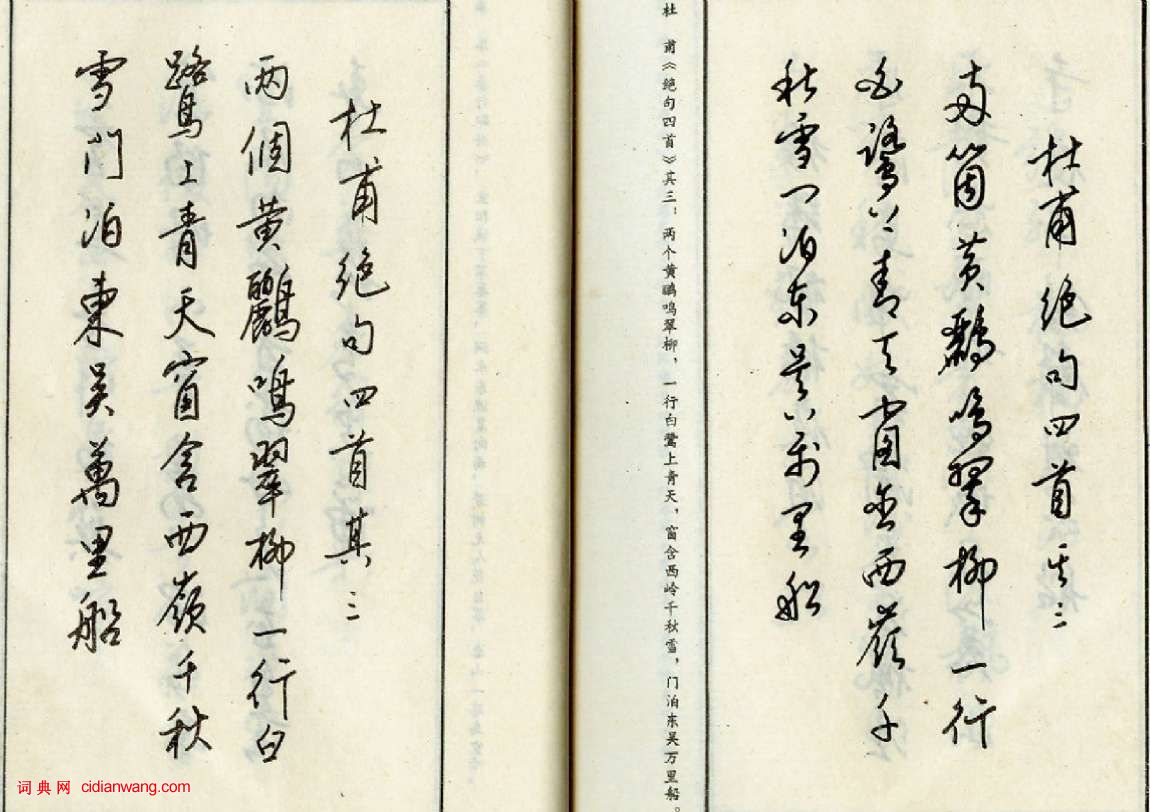 杜甫绝句四首其三
两箇黄鸝鳴翠柳一行
白鷺上青天窗含西嶺千
秋雪门泊东吴万里船
杜 甫《绝句四首》其三：两个黄鹂鸣翠柳，一行白鹭上青天，窗含西岭千秋雪，门泊东吴万里船。
杜甫绝句四首其三
两個黄鸝鳴翠柳一行白
鷺上青天窗含西嶺千秋
雪門泊東吴萬里船
词典网 cidianwang.com